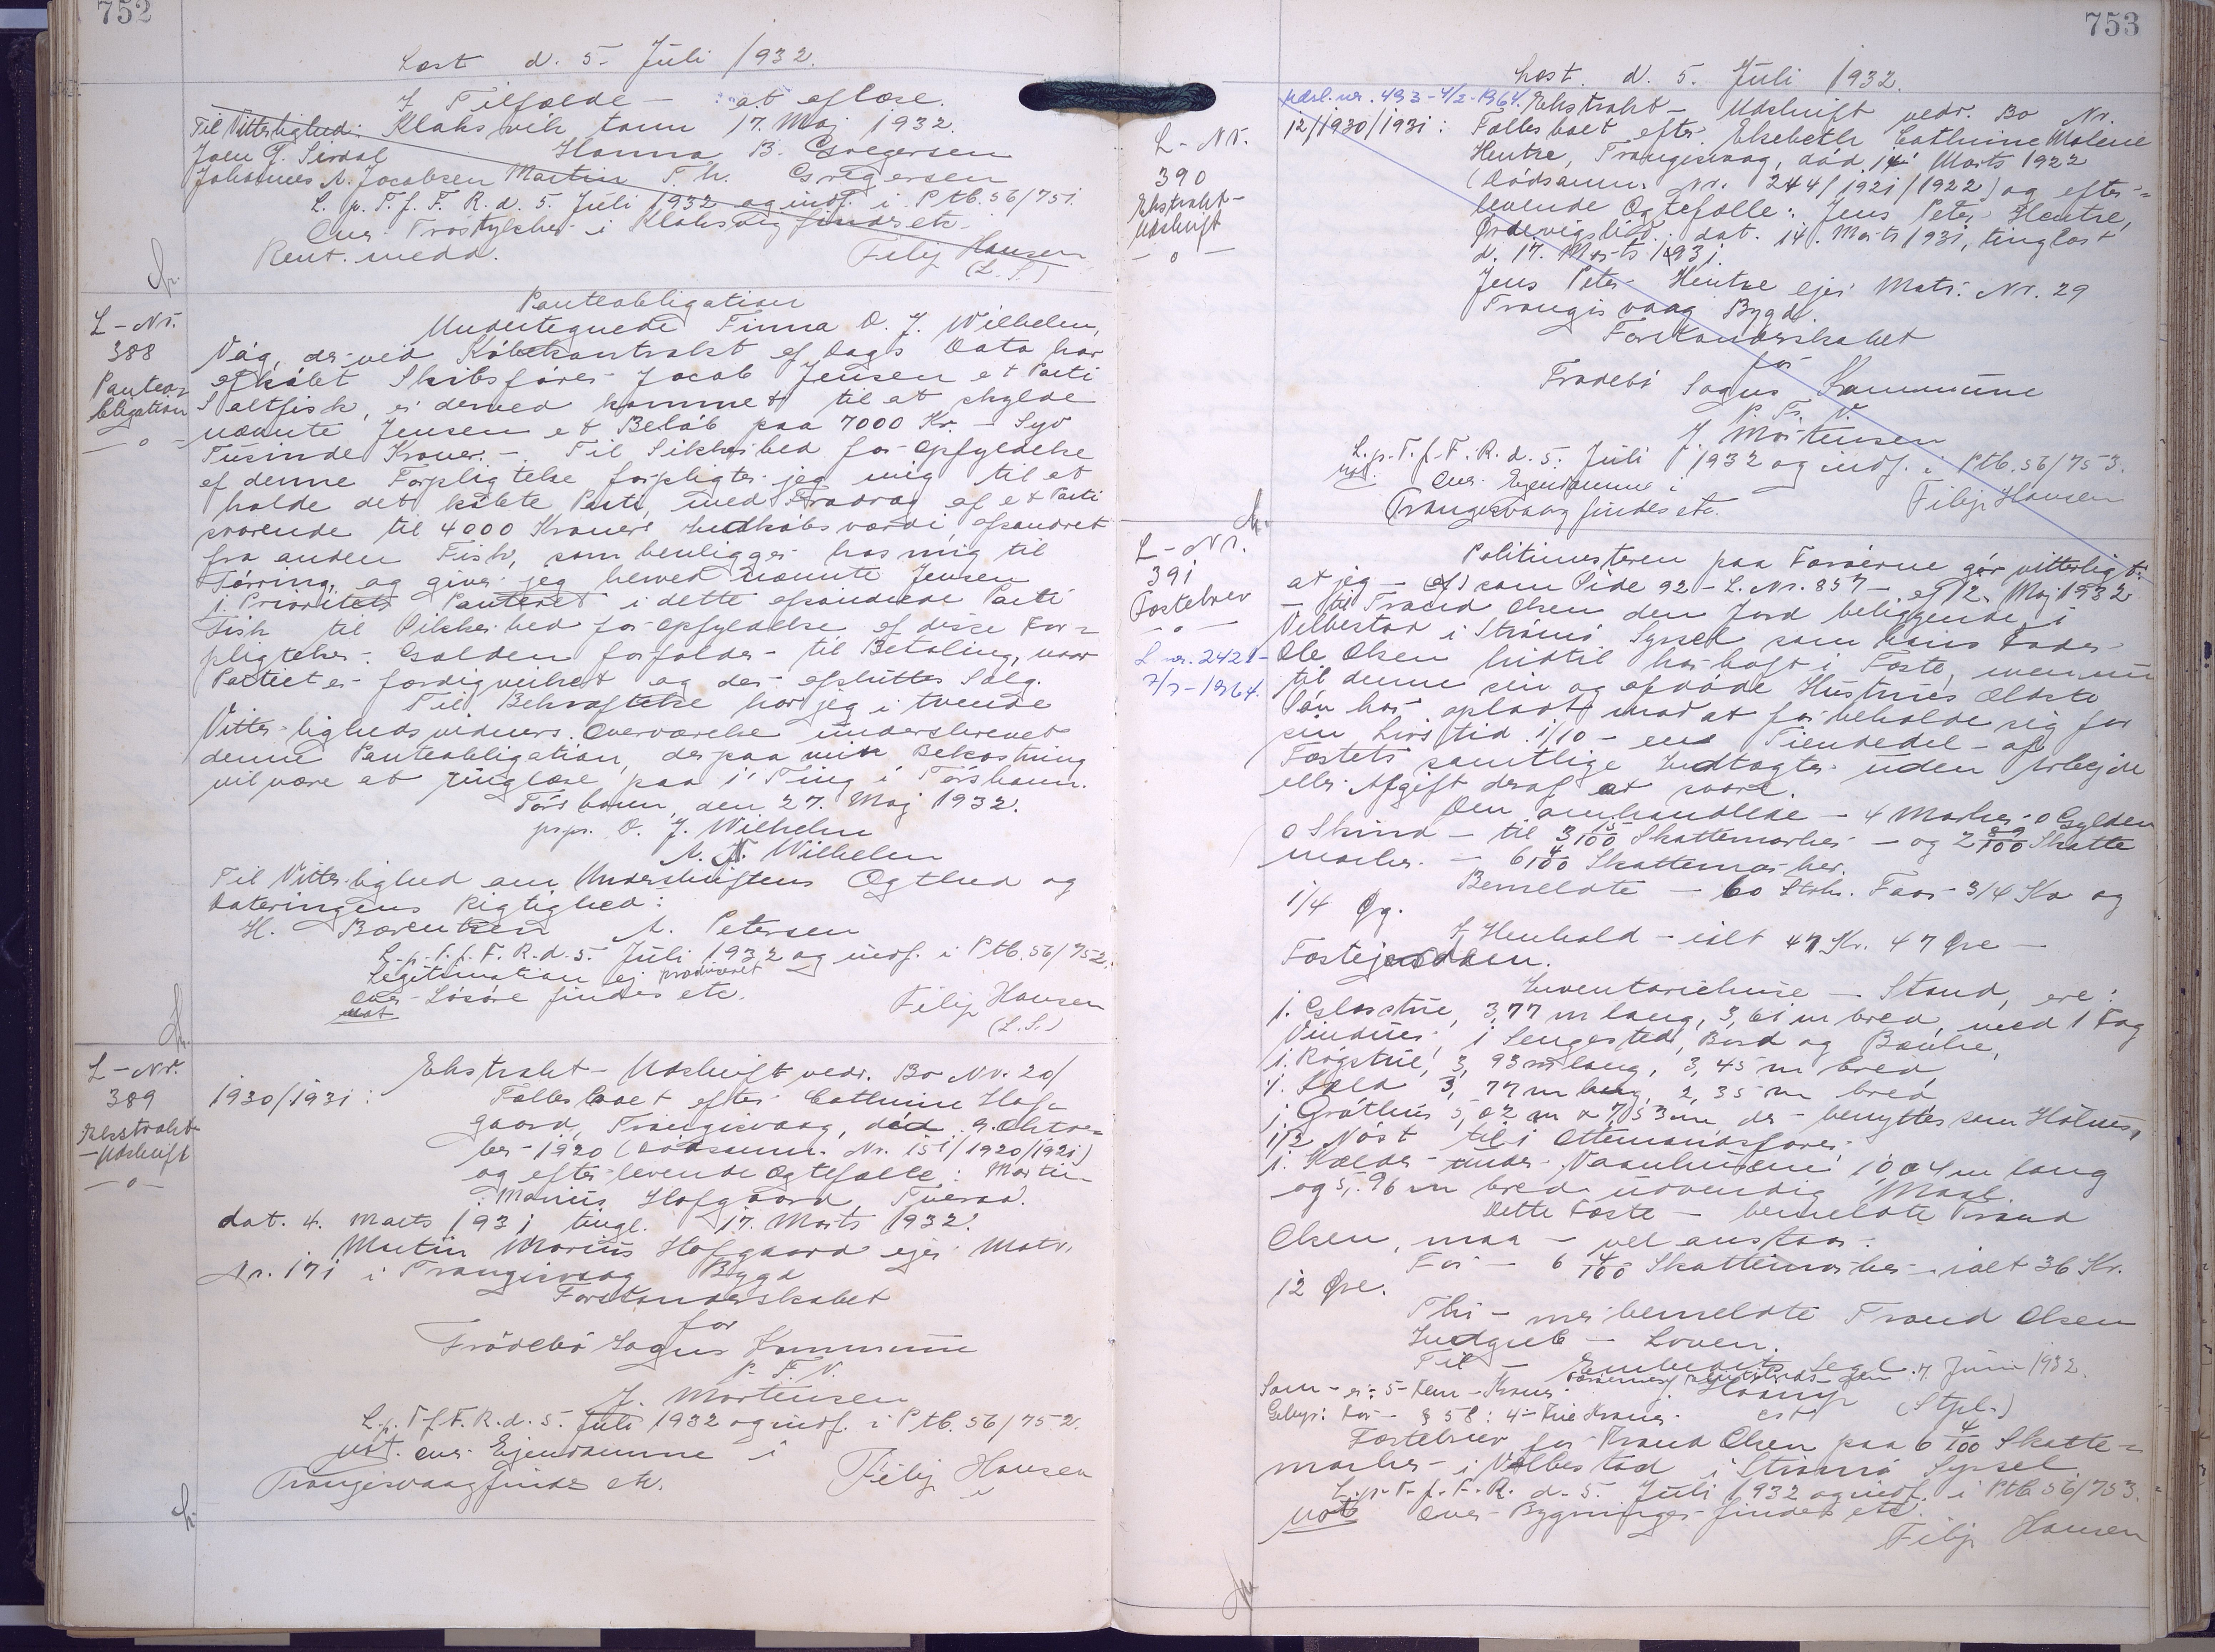 752
Læst d. 5. Juli 1932.
I Tilfælde - at aflæse.
Til Vitterlighed: Klaksvik tann 17. Maj 1932.
Joen J. Sirdal Hanna B. Gregersen
Johannes A. Jacobsen Martin F. W. Gregersen
L. p. T. f. F. R. d. 5. Juli 1932 og indf. i Ptb. 56/751.
Over Trøstykker i Klaksvig findes etc.
Rent. medd. Filip Hansen
(L. S.)
L-Nr.
388
Panteo-
bligation
- o -
Panteobligation
Undertegnede Finna O. J. Wilhelm,
Våg, der ved Købekontrakt af Dags Dato har
afkøbt Skibsfører Jacob Jensen et Parti
Saltfisk, er derved kommet til at skylde
nævnte Jensen et Beløb paa 7000 Kr. - Syv
Tusinde Kroner. - Til Sikkerhed for Opfyldelse
af denne Forpligtelse forpligter jeg mig til at
holde det købte Parti, med Fradrag af et Parti
svarende til 4000 Kroners Indkøbsværdi, afsondret
fra anden Fisk, som henligger hos mig til
Tørring, og giver jeg herved nævnte Jensen
1. Prioritets Panteret i dette afsondrede Parti
Fisk til Sikkerhed for Opfyldelse af disse For-
pligtelser. Gælden forfalder til Betaling, naar
Partiet er færdigvirket og der afsluttes Salg.
Til Bekræftelse har jeg i tvende
Vitterlighedsvidners Overværelse underskrevet
denne Panteobligation, der paa min Bekostning
vil være at tinglæse paa 1' Ting i Torshavn.
Tórshavn, den 27. Maj 1932.
pr.pr. O. J. Wilhelm
A. N. Wilhelm
Til Vitterlighed om Underskriftens Ægthed og
Dateringens Rigtighed:
H. Bærentsen A. Petersen
L. p. T. f. F. R. d. 5. Juli 1932 og indf. i Ptb. 56/752.
Legitimation ej produceret
Over Løsøre findes etc.
not Filip Hansen
(L.S.)
L-Nr.
389
Ekstrakt-
-Udskrift
- o -
Ekstrakt-Udskrift vedr. Bo Nr. 20/
1930/1931: Fællesboet efter Cathrine Hof-
gaard, Trangisvaag, død 9. Okto-
ber 1920 (Dødsanm. Nr. 151/1920/1921)
og efterlevende Ægtefælle: Martin
Marius Hofgaard, Tveraa.
dat. 4. Marts 1931 tingl. 17. Marts 1932.
Martin Marius Hofgaard ejer Matr.
Nr. 171 i Trangisvaag Bygd
Forstanderskabet
for
Frödebö Sogns Kommune
P. F. V.
J. Mortensen
L. p. T. f. F. R. d. 5. Juli 1932 og indf. i Ptb. 56/752.
not. over Ejendomme i
Trangisvaag findes etc. Filip Hansen
753
Læst d. 5. Juli 1932.
L-Nr.
390
Ekstrakt-
Udskrift
- o -
Udsl. nr. 493 - 4/2-1964. Ekstrakt-Udskrift vedr. Bo Nr.
12/1930/1931: Fællesboet efter Elsebeth Cathrine Malene
Hentze, Trangisvaag, død 14' Marts 1922
(Dødsanm. Nr. 244/1921/1922) og efter-
levende Ægtefælle: Jens Peter Hentze,
Ørdevigslid: dat. 14. Marts 1931, tinglæst
d. 17. Marts 1931.
Jens Peter Hentze ejer Matr. Nr. 29
Trangisvaag Bygd.
Forstanderskabet
for
Frodebö Sogns Kommune
P. F. V.
J. Mortensen
L. p. T. f. F. R. d. 5. Juli 1932 og indf. i Ptb. 56/753.
not. Over Ejendomme i
Trangisvaag findes etc. Filip Hansen
L-Nr.
391
Fæstebrev
- o -
L nr. 2421-
7/7-1964.
Politimesteren paa Færøerne gör vitterligt:
at jeg - (cf) som Side 92 - L. Nr. 857 - af 12. Maj 1932
- til Trand Olsen den Jord beliggende i
Velbestad i Strömö Syssel som hans Fader
Ole Olsen hidtil har haft i Fæste, men nu
til denne sin og afdöde Hustrues ældste
Sön har opladt mod at forbeholde sig for
sin Livstid 1/10 - en Tiendedel - af
Fæstets samtlige Indtægter uden Arbejde
eller Afgift deraf at svare.
Den omhandlede - 4 Marker 0 Gylden
0 Skind - til 3 15/100 Skattemarker - og 2 89/100 Skatte
marker. - 6 4/100 Skattemarker.
Bemeldte - 60 Stkr. Faar 3/4 Ko og
1/4 Qg.
I Henhold - ialt 47 Kr. 47 Øre -
Fæstejorden.
Inventariehuse - Stand, ere:
1. Glasstue, 3,77 m lang, 3,61 m bred, med 1 Fag
Vinduer, 1 Sengested, Bord og Bænke,
1. Rögstue, 3,93 m lang, 3,45 m bred,
1. Sæld 3,77 m lang, 2,35 m bred
1. Gróthus 5,02 m x 7,53 m, der benyttes som Höhus,
1/2 Nöst til 1 Ottemandsfarer,
1. Kælder under Vaanhusene 10,04 m lang
og 5,96 m bred udvendig Maal.
Dette Fæste - bemeldte Trand
Olsen, maa - vel anstaar.
For - 6 4/100 Skattemarker - ialt 36 Kr.
12 Øre.
Thi - mer bemeldte Trand Olsen
Indgreb - Loven.
Til - Embedets Segl. 7. Juni 1932.
Som - er: 5 - Fem - Kroner
Gebyr: for - § 58: 4 - Fire Kroner. cst (Stpl.)
Fæstebrev for Trand Olsen paa 6 4/100 Skatte-
marker i Velbestad i Strömö Syssel
L. p. T. f. F. R. d. 5. Juli 1932 og indf. i Ptb. 56/753.
not over Bygninger findes etc.
Filip Hansen